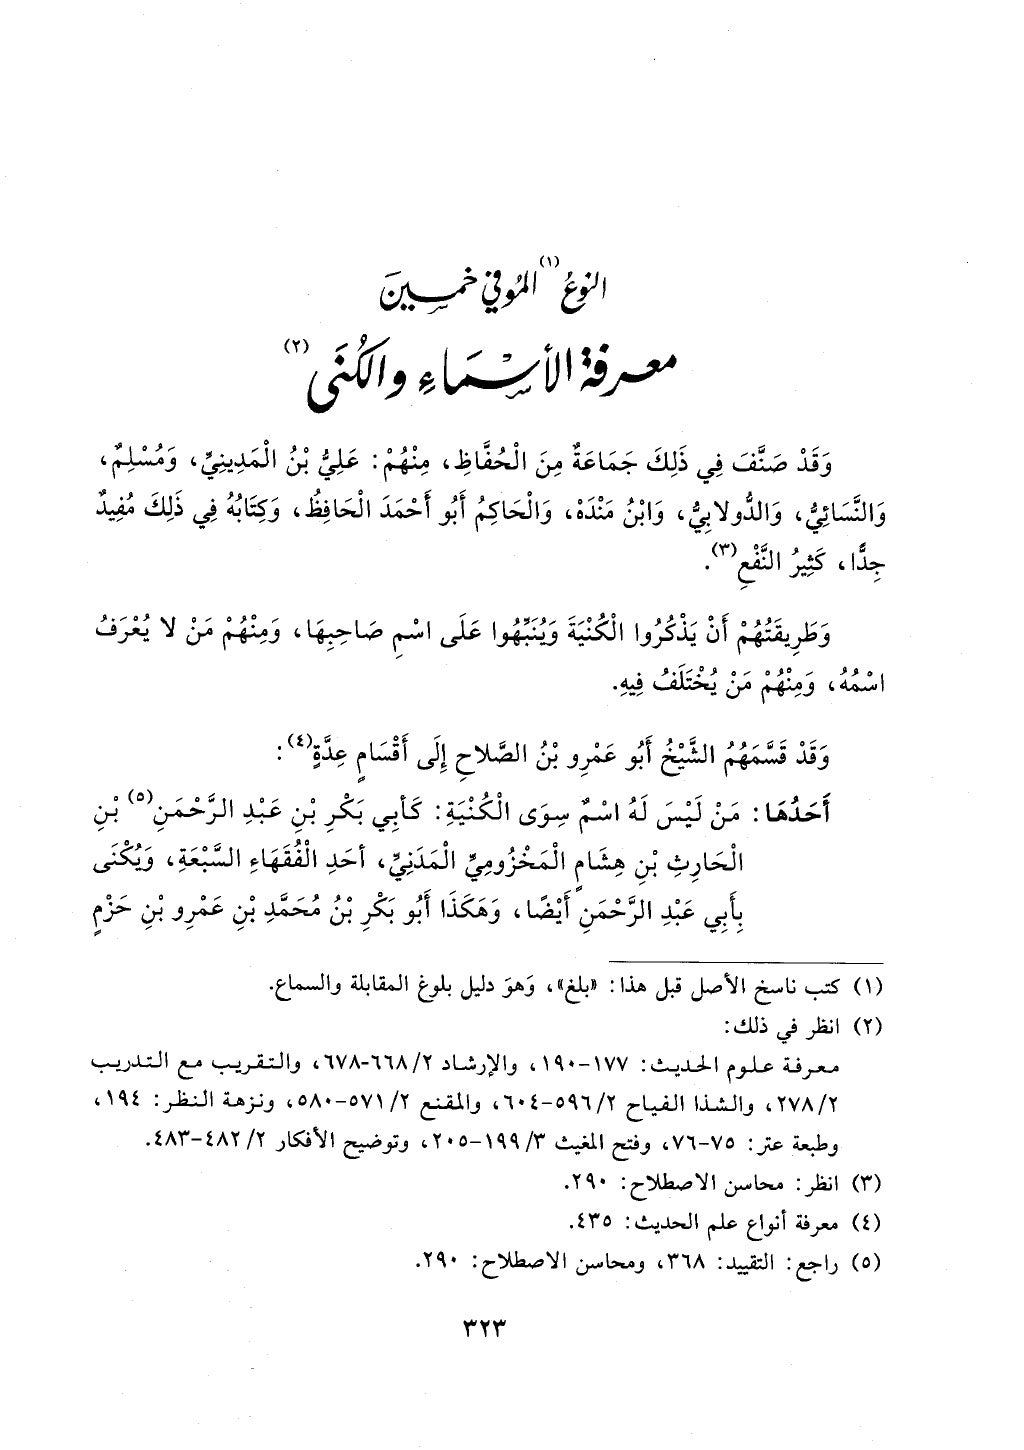 النوعُ(١) المُوفي خمسينَ
معرفة الأسْمَاءِ والكُنَى(٢)
وَقَدْ صَنَّفَ فِي ذَلِكَ جَمَاعَةٌ مِنَ الْحُفَّاظِ، مِنْهُمْ: عَلِيُّ بْنُ الْمَدِينِيِّ، وَمُسْلِمٌ،
وَالنَّسَائِيُّ، وَالدُّولابِيُّ، وَابْنُ مَنْدَهْ، وَالْحَاكِمُ أَبُو أَحْمَدَ الْحَافِظُ، وَكِتَابُهُ فِي ذَلِكَ مُفِيدٌ
جِدًّا، كَثِيرُ النَّفْعِ(٣).
وَطَرِيقَتُهُمْ أَنْ يَذْكُرُوا الْكُنْيَةَ وَيُنَبِّهُوا عَلَى اسْمِ صَاحِبِهَا، وَمِنْهُمْ مَنْ لا يُعْرَفُ
اسْمُهُ، وَمِنْهُمْ مَنْ يُخْتَلَفُ فِيهِ.
وَقَدْ قَسَّمَهُمُ الشَّيْخُ أَبُو عَمْرِو بْنُ الصَّلاحِ إِلَى أَقْسَامٍ عِدَّةٍ(٤):
أَحَدُهَا: مَنْ لَيْسَ لَهُ اسْمٌ سِوَى الْكُنْيَةِ: كَأَبِي بَكْرِ بْنِ عَبْدِ الرَّحْمَنِ(٥) بْنِ
الْحَارِثِ بْنِ هِشَامٍ الْمَخْزُومِيِّ الْمَدَنِيِّ، أَحَدِ الْفُقَهَاءِ السَّبْعَةِ، وَيُكْنَى
بِأَبِي عَبْدِ الرَّحْمَنِ أَيْضًا، وَهَكَذَا أَبُو بَكْرِ بْنُ مُحَمَّدِ بْنِ عَمْرِو بْنِ حَزْمٍ
(١) كتب ناسخ الأصل قبل هذا: «بلغ»، وَهوَ دليل بلوغ المقابلة والسماع.
(٢) انظر في ذلك:
معرفة علوم الحديث: ١٧٧-١٩٠، والإرشاد ٢/ ٦٦٨-٦٧٨، والتقريب مع التدريب
٢/ ٢٧٨، والشذا الفياح ٢/ ٥٩٦-٦٠٤، والمقنع ٢/ ٥٧١-٥٨٠، ونزهة النظر: ١٩٤،
وطبعة عتر: ٧٥-٧٦، وفتح المغيث ٣/ ١٩٩-٢٠٥، وتوضيح الأفكار ٢/ ٤٨٢-٤٨٣.
(٣) انظر: محاسن الاصطلاح: ٢٩٠.
(٤) معرفة أنواع علم الحديث: ٤٣٥.
(٥) راجع: التقييد: ٣٦٨، ومحاسن الاصطلاح: ٢٩٠.
٣٢٣